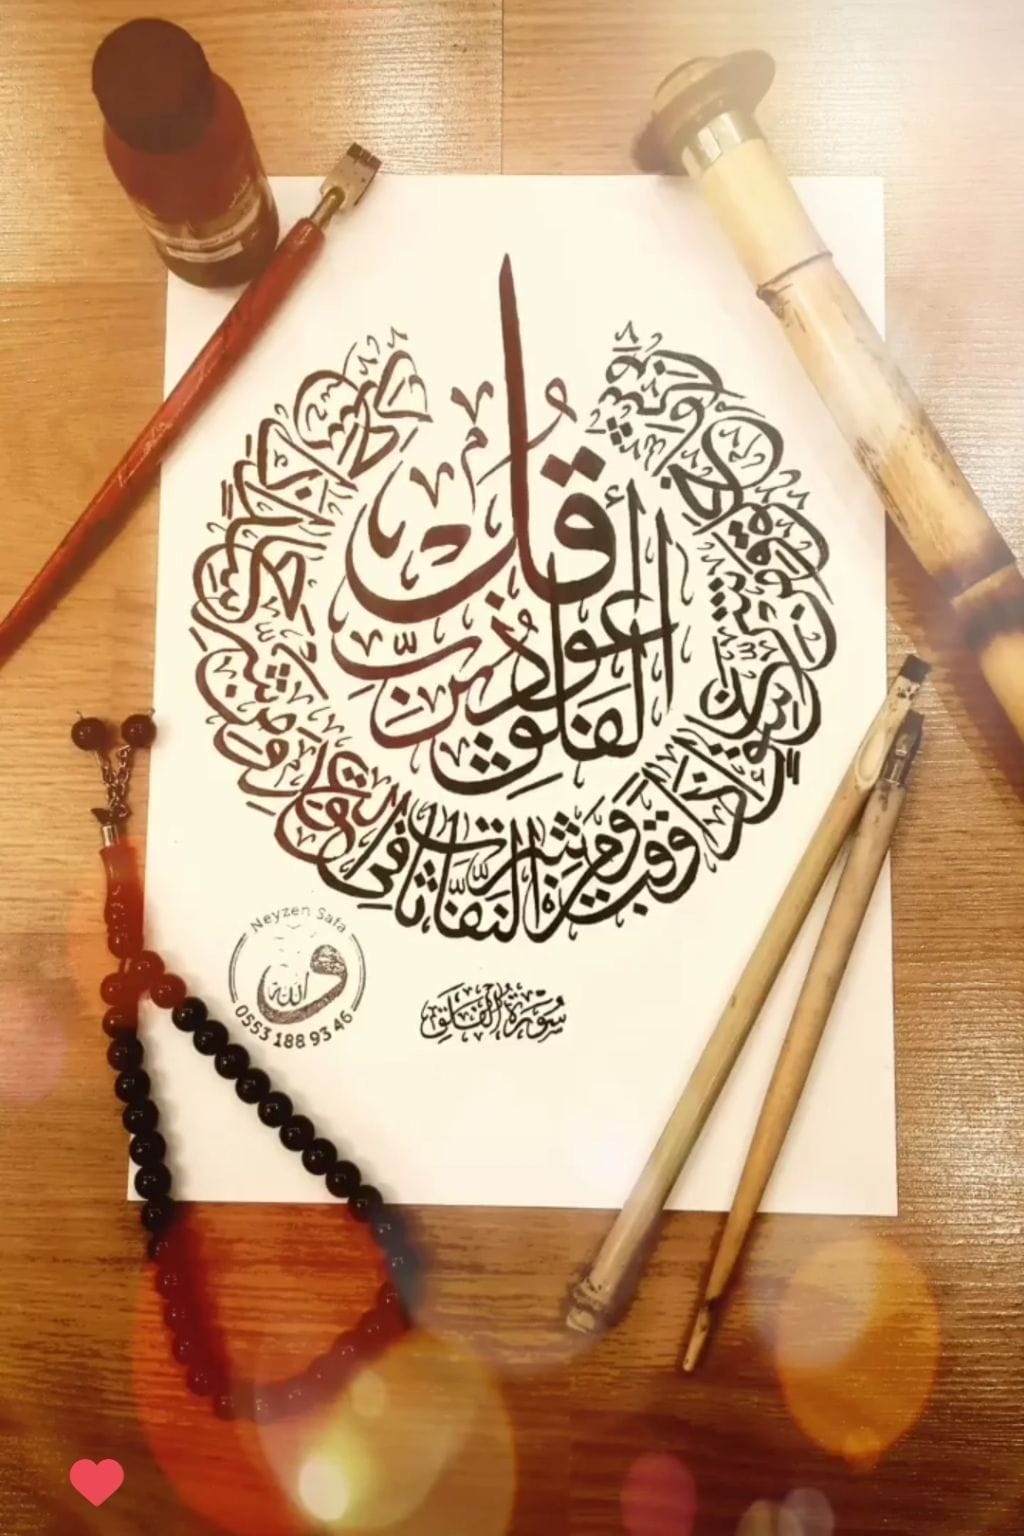 قُلْ أَعُوذُ بِرَبِّ الْفَلَقِ
مِن شَرِّ مَا خَلَقَ
وَمِن شَرِّ غَاسِقٍ إِذَا وَقَبَ
وَمِن شَرِّ النَّفَّاثَاتِ فِي الْعُقَدِ
وَمِن شَرِّ حَاسِدٍ إِذَا حَسَدَ
سُورَةُ الْفَلَقِ
Neyzen Safa
و الله
0553 188 93 46